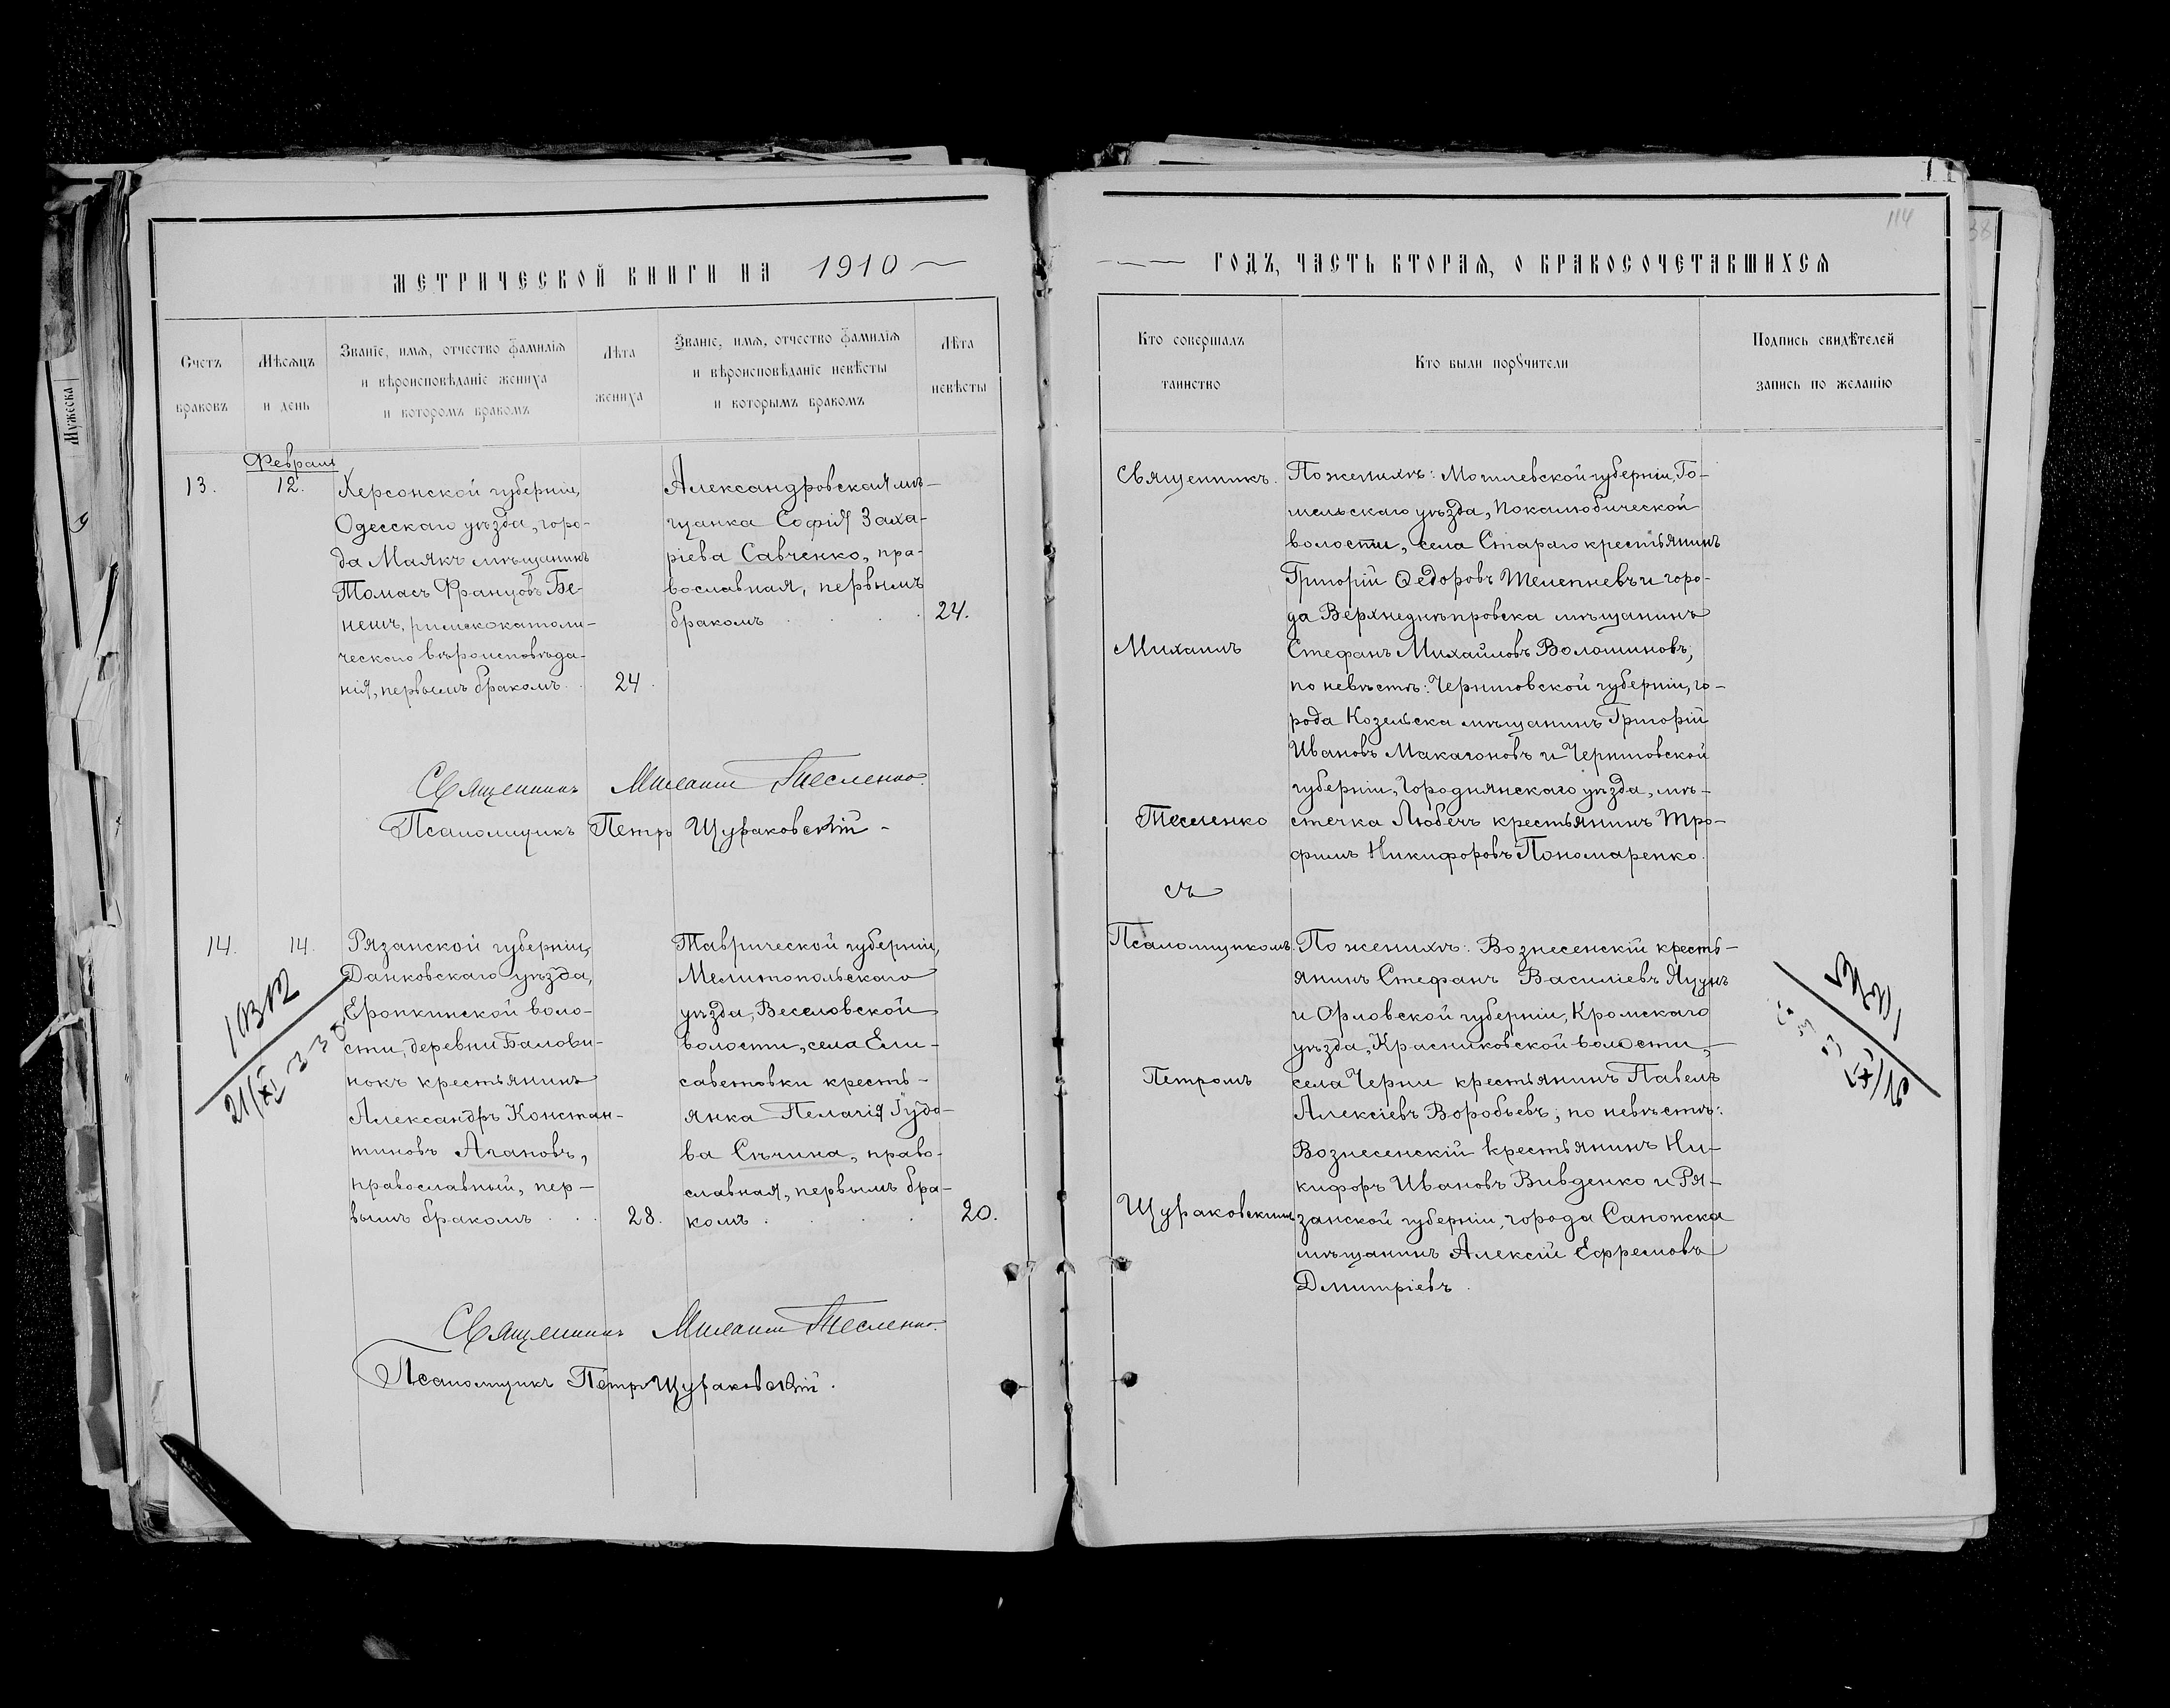 114
38
Мужеска
МЕТРИЧЕСКОЙ КНИГИ НА 1910
ГОДЪ, ЧАСТЬ ВТОРАЯ, О БРАКОСОЧЕТАВШИХСЯ
Счетъ
браковъ
Мѣсяцъ
и день
Званіе, имя, отчество фамилія
и вѣроисповѣданіе жениха
и которомъ бракомъ
Лѣта
жениха
Званіе, имя, отчество фамилія
и вѣроисповѣданіе невѣсты
и которымъ бракомъ
Лѣта
невѣсты
Кто совершалъ
таинство
Кто были поручители
Подпись свидѣтелей
запись по желанію
13.
Февраля
12.
Херсонской губерніи,
Одесскаго уѣзда, горо-
да Маякъ мѣщанинъ
Томасъ Францовъ Бе-
нешъ, римскокатоли-
ческаго вѣроисповѣда-
нія, первымъ бракомъ.
24.
Александровская мѣ-
щанка Софія Заха-
ріева Савченко, пра-
вославная, первымъ
бракомъ
24.
Священникъ Михаилъ Тесленко.
Псаломщикъ Петръ Щураковскій -
Священникъ.
Михаилъ
Тесленко
съ
Псаломщикомъ
Петромъ
Щураковскимъ
По женихѣ: Могилевской губерніи, Го-
мельскаго уѣзда, Покалюбической
волости, села Стараго крестьянинъ
Григорій Ѳедоровъ Шелепневъ и горо-
да Верхнеднѣпровска мѣщанинъ
Стефанъ Михайловъ Волошиновъ;
по невѣстѣ: Черниговской губерніи, го-
рода Козельска мѣщанинъ Григорій
Ивановъ Макагоновъ и Черниговской
губерніи, Городнянскаго уѣзда, мѣ-
стечка Любечъ крестьянинъ Тро-
фимъ Никифоровъ Пономаренко.
14.
14.
Рязанской губерніи,
Данковскаго уѣзда,
Еропкинской воло-
сти, деревни Балови-
нокъ крестьянинъ
Александръ Констан-
тиновъ Агановъ,
православный, пер-
вымъ бракомъ
28.
Таврической губерніи,
Мелитопольскаго
уѣзда, Веселовской
волости, села Ели-
саветовки кресть-
янка Пелагія Гудо-
ва Сѣчина, право-
славная, первымъ бра-
комъ
20.
Священникъ Михаилъ Тесленко.
Псаломщикъ Петръ Щураковскій.
По женихѣ: Вознесенскій кресть-
янинъ Стефанъ Василіевъ Яцунъ
и Орловской губерніи, Кромскаго
уѣзда, Красниковской волости,
села Черни крестьянинъ Павелъ
Алексіевъ Воробьевъ; по невѣстѣ:
Вознесенскій крестьянинъ Ни-
кифоръ Ивановъ Вивденко и Ря-
занской губерніи, города Сапожка
мѣщанинъ Алексій Ефремовъ
Дмитріевъ.